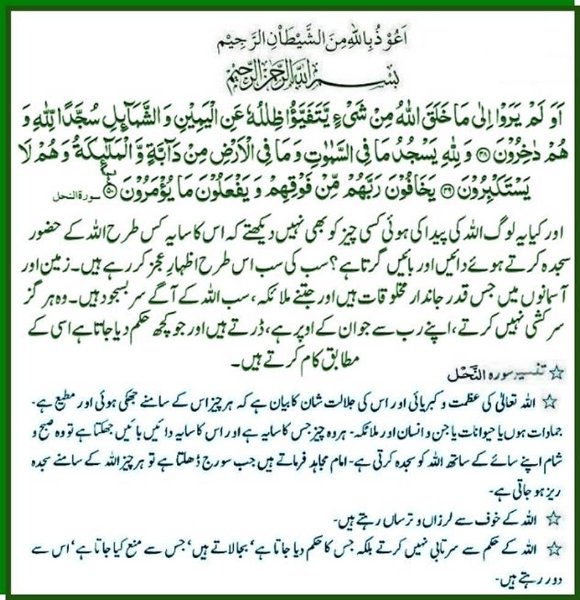 اَعُوْذُ بِاللّٰهِ مِنَ الشَّيْطٰانِ الرَّجِيْمِ
بِسْمِ اللّٰهِ الرَّحْمٰنِ الرَّحِيْمِ
اَوَ لَمْ يَرَوْا اِلٰى مَا خَلَقَ اللّٰهُ مِنْ شَيْءٍ يَّتَفَيَّؤُا ظِلٰلُهٗ عَنِ الْيَمِيْنِ وَ الشَّمَآىِٕلِ سُجَّدًا لِّلّٰهِ وَ
هُمْ دٰخِرُوْنَ ۴۸ وَ لِلّٰهِ يَسْجُدُ مَا فِي السَّمٰوٰتِ وَ مَا فِي الْاَرْضِ مِنْ دَآبَّةٍ وَّ الْمَلٰٓىِٕكَةُ وَ هُمْ لَا
يَسْتَكْبِرُوْنَ ۴۹ يَخَافُوْنَ رَبَّهُمْ مِّنْ فَوْقِهِمْ وَ يَفْعَلُوْنَ مَا يُؤْمَرُوْنَ ۵۰ سورۃ النحل
اور کیا یہ لوگ اللہ کی پیدا کی ہوئی کسی چیز کو بھی نہیں دیکھتے کہ اس کا سایہ کس طرح اللہ کے حضور
سجدہ کرتے ہوئے دائیں اور بائیں گرتا ہے؟ سب کی سب اس طرح اظہارِ عجز کر رہے ہیں۔ زمین اور
آسمانوں میں جس قدر جاندار مخلوقات ہیں اور جتنے ملائکہ، سب اللہ کے آگے سر بسجود ہیں۔ وہ ہرگز
سرکشی نہیں کرتے، اپنے رب سے جو ان کے اوپر ہے، ڈرتے ہیں اور جو کچھ حکم دیا جاتا ہے اسی کے
مطابق کام کرتے ہیں۔
☆ تفسیر سورہ النَّحْل
☆ اللہ تعالیٰ کی عظمت و کبریائی اور اس کی جلالت شان کا بیان ہے کہ ہر چیز اس کے سامنے جھکی ہوئی اور مطیع ہے۔
جمادات ہوں یا حیوانات یا جن و انسان اور ملائکہ۔ ہر وہ چیز جس کا سایہ ہے اور اس کا سایہ دائیں بائیں جھکتا ہے تو وہ صبح و
شام اپنے سائے کے ساتھ اللہ کو سجدہ کرتی ہے۔ امام مجاہد فرماتے ہیں جب سورج ڈھلتا ہے تو ہر چیز اللہ کے سامنے سجدہ
ریز ہو جاتی ہے۔
☆ اللہ کے خوف سے لرزاں و ترساں رہتے ہیں۔
☆ اللہ کے حکم سے سرتابی نہیں کرتے بلکہ جس کا حکم دیا جاتا ہے‘ بجالاتے ہیں‘ جس سے منع کیا جاتا ہے‘ اس سے
دور رہتے ہیں۔